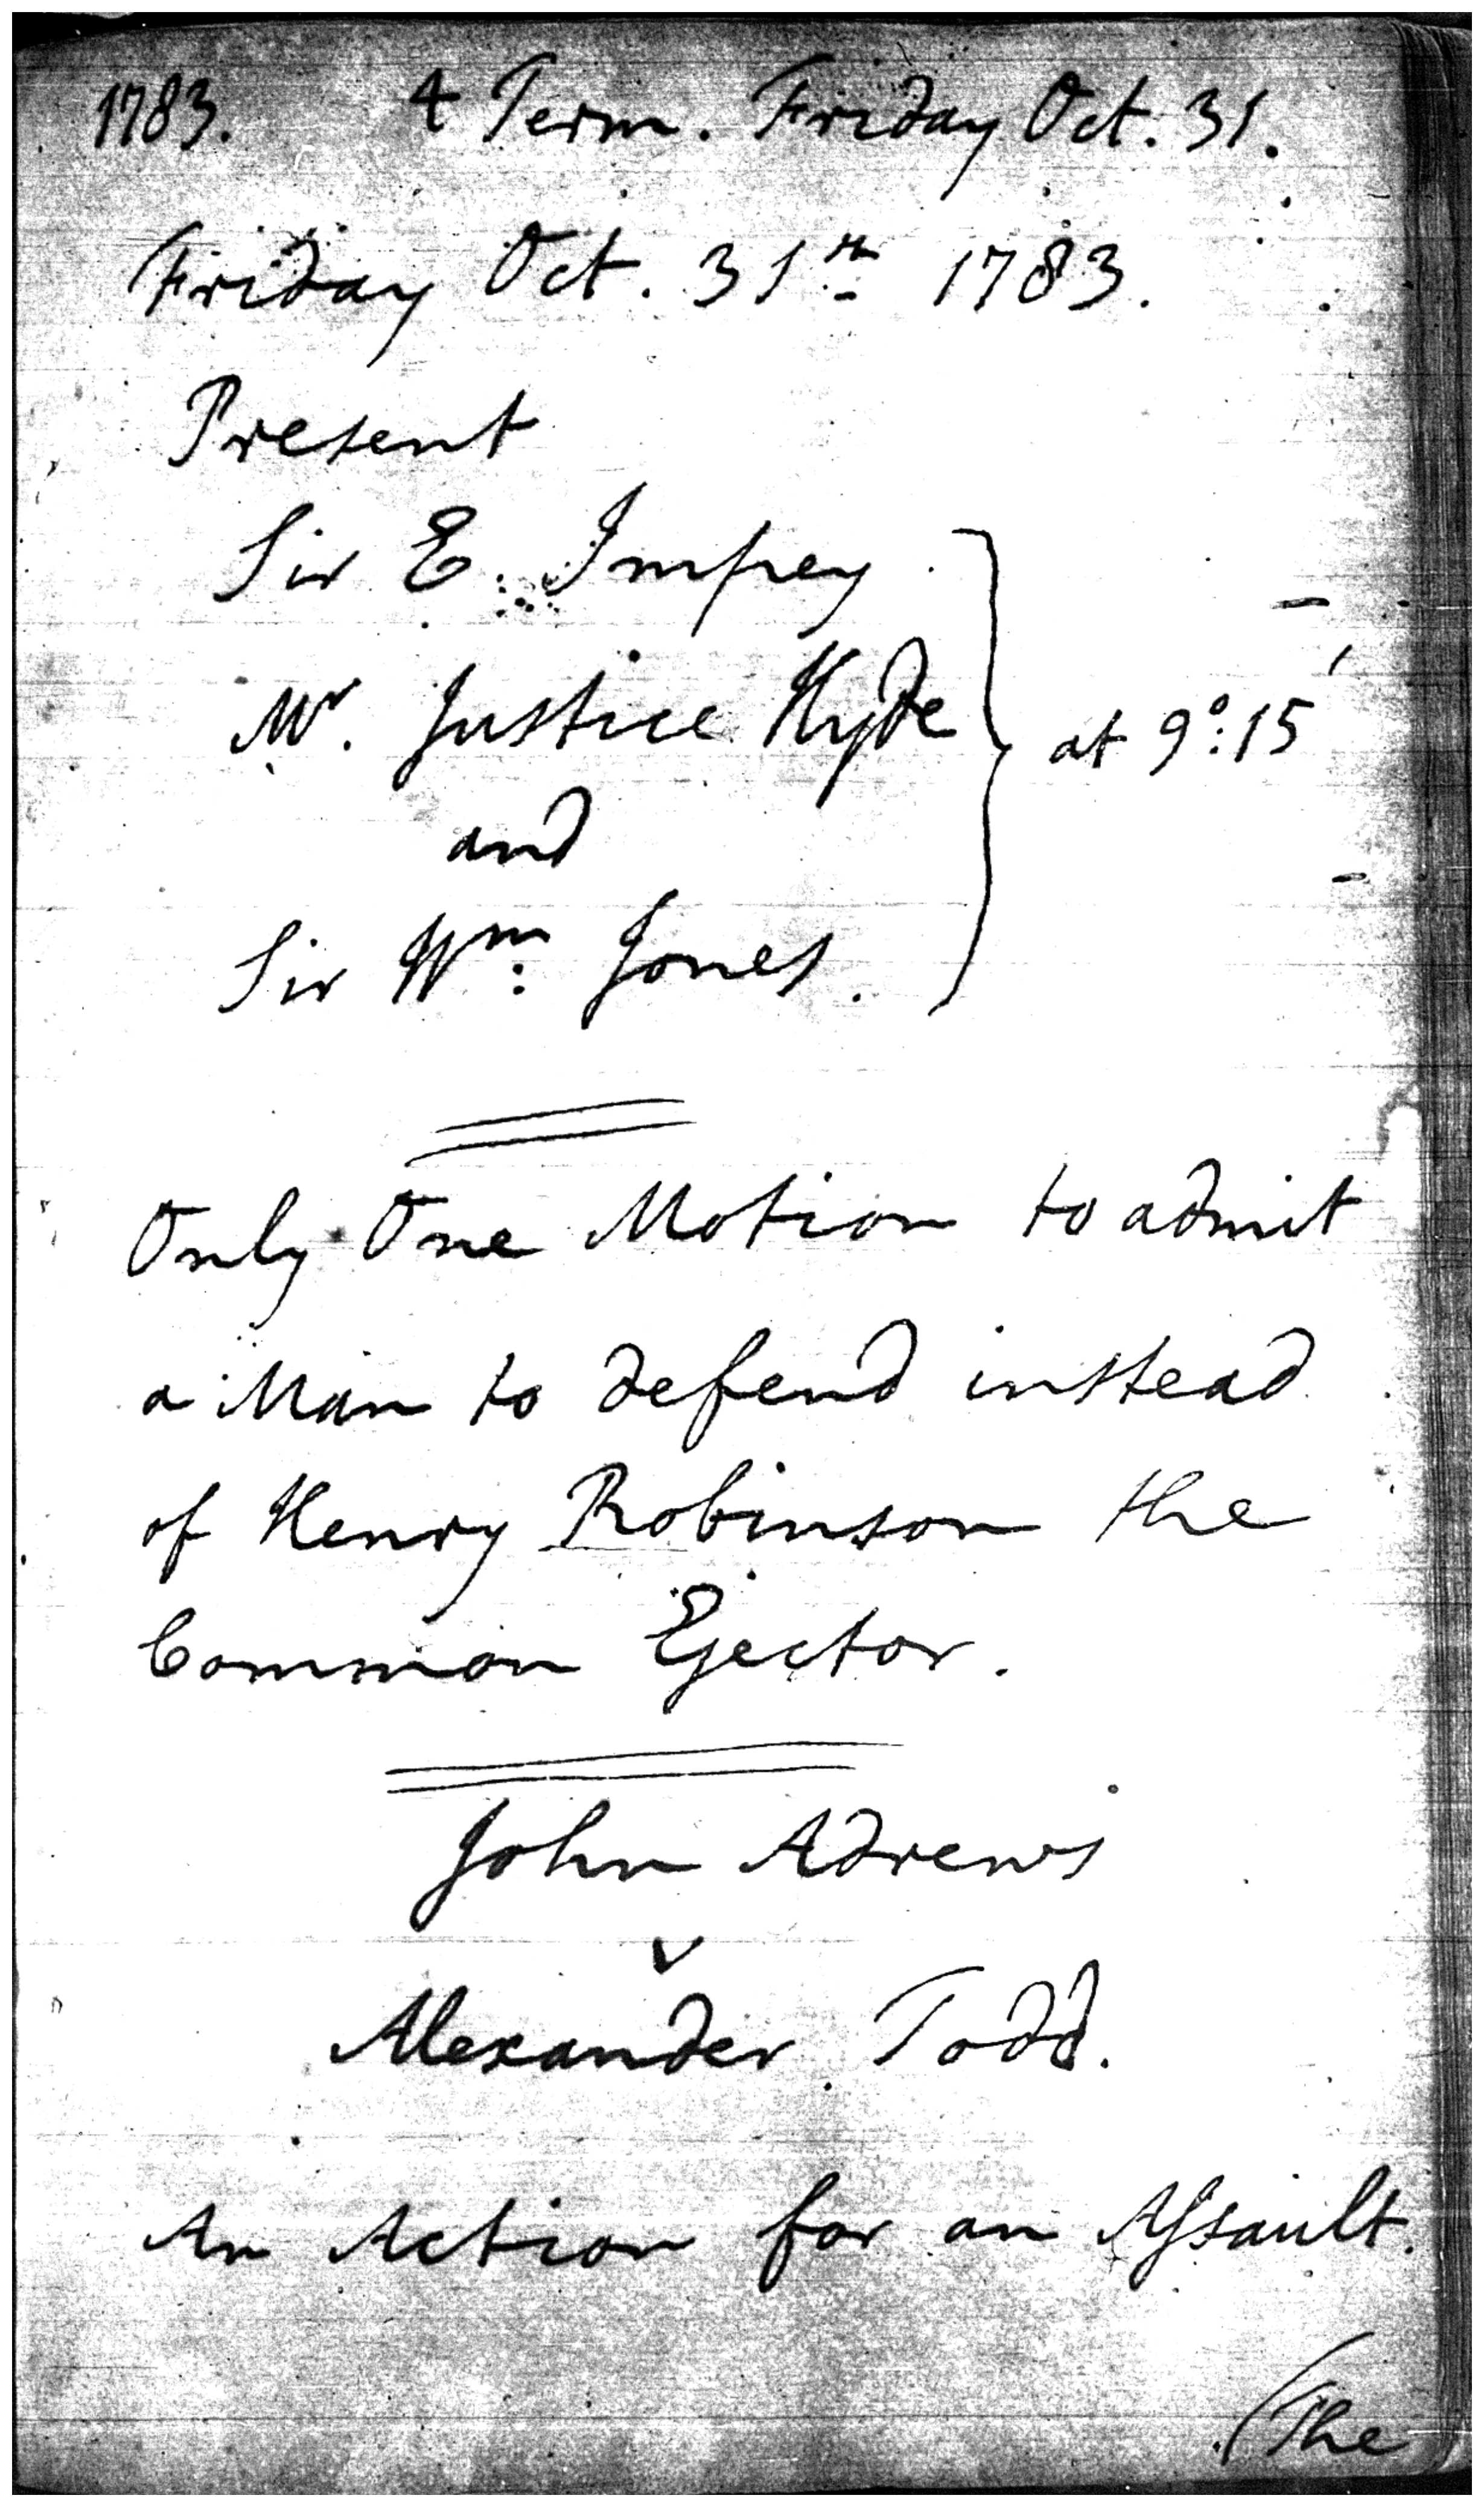 1783. 4 Term. Friday Oct. 31.
Friday Oct. 31st 1783.
Present
Sir E. Impey
Mr. Justice Hyde
at 9°: 15'
and
Sir Wm: Jones.
Only One Motion to admit
a Man to defend instead
of Henry Robinson the
Common Ejector.
John Adrews
v
Alexander Todd.
An Action for an Assault.
(The